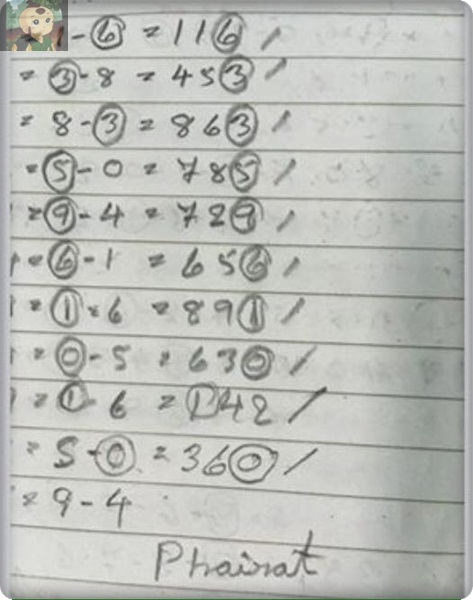 - 6 = 116 /
= 3 - 8 = 453 /
= 8 - 3 = 863 /
= 5 - 0 = 785 /
= 9 - 4 = 729 /
= 6 - 1 = 656 /
= 1 - 6 = 891 /
= 0 - 5 = 630 /
= 1 - 6 = 142 /
= 5 - 0 = 360 /
= 9 - 4
Phairat